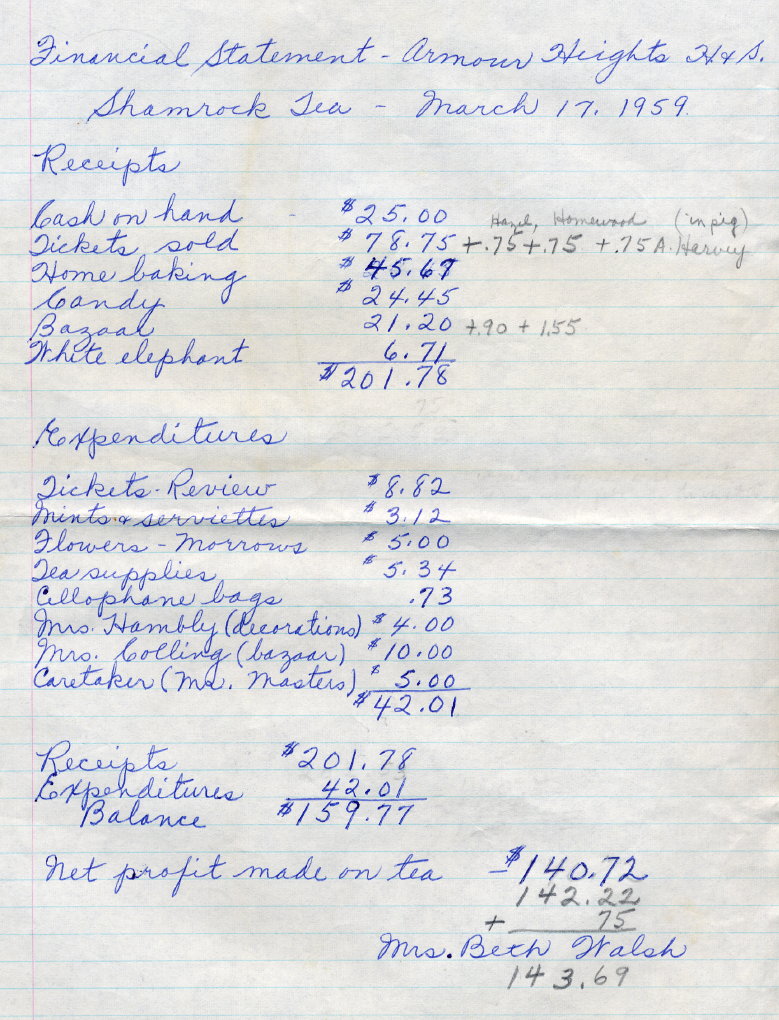 Financial Statement - Armour Heights H & S.
Shamrock Tea - March 17, 1959.
Receipts
Cash on hand - $25.00 Hazel, Homewood (in pig)
Tickets sold $78.75 +.75 +.75 +.75 A. Harvey
Home baking $45.67
Candy $24.45
Bazaar 21.20 +.90 + 1.55
White elephant 6.71
$201.78
Expenditures
Tickets - Review $8.82
Mints & serviettes $3.12
Flowers - Morrows $5.00
Tea supplies $5.34
Cellophane bags .73
Mrs. Hambly (decorations) $4.00
Mrs. Colling (bazaar) $10.00
Caretaker (Mr. Masters) $5.00
$42.01
Receipts $201.78
Expenditures 42.01
Balance $159.77
Net profit made on tea - $140.72
142.22
+ 75
Mrs. Beth Walsh
143.69